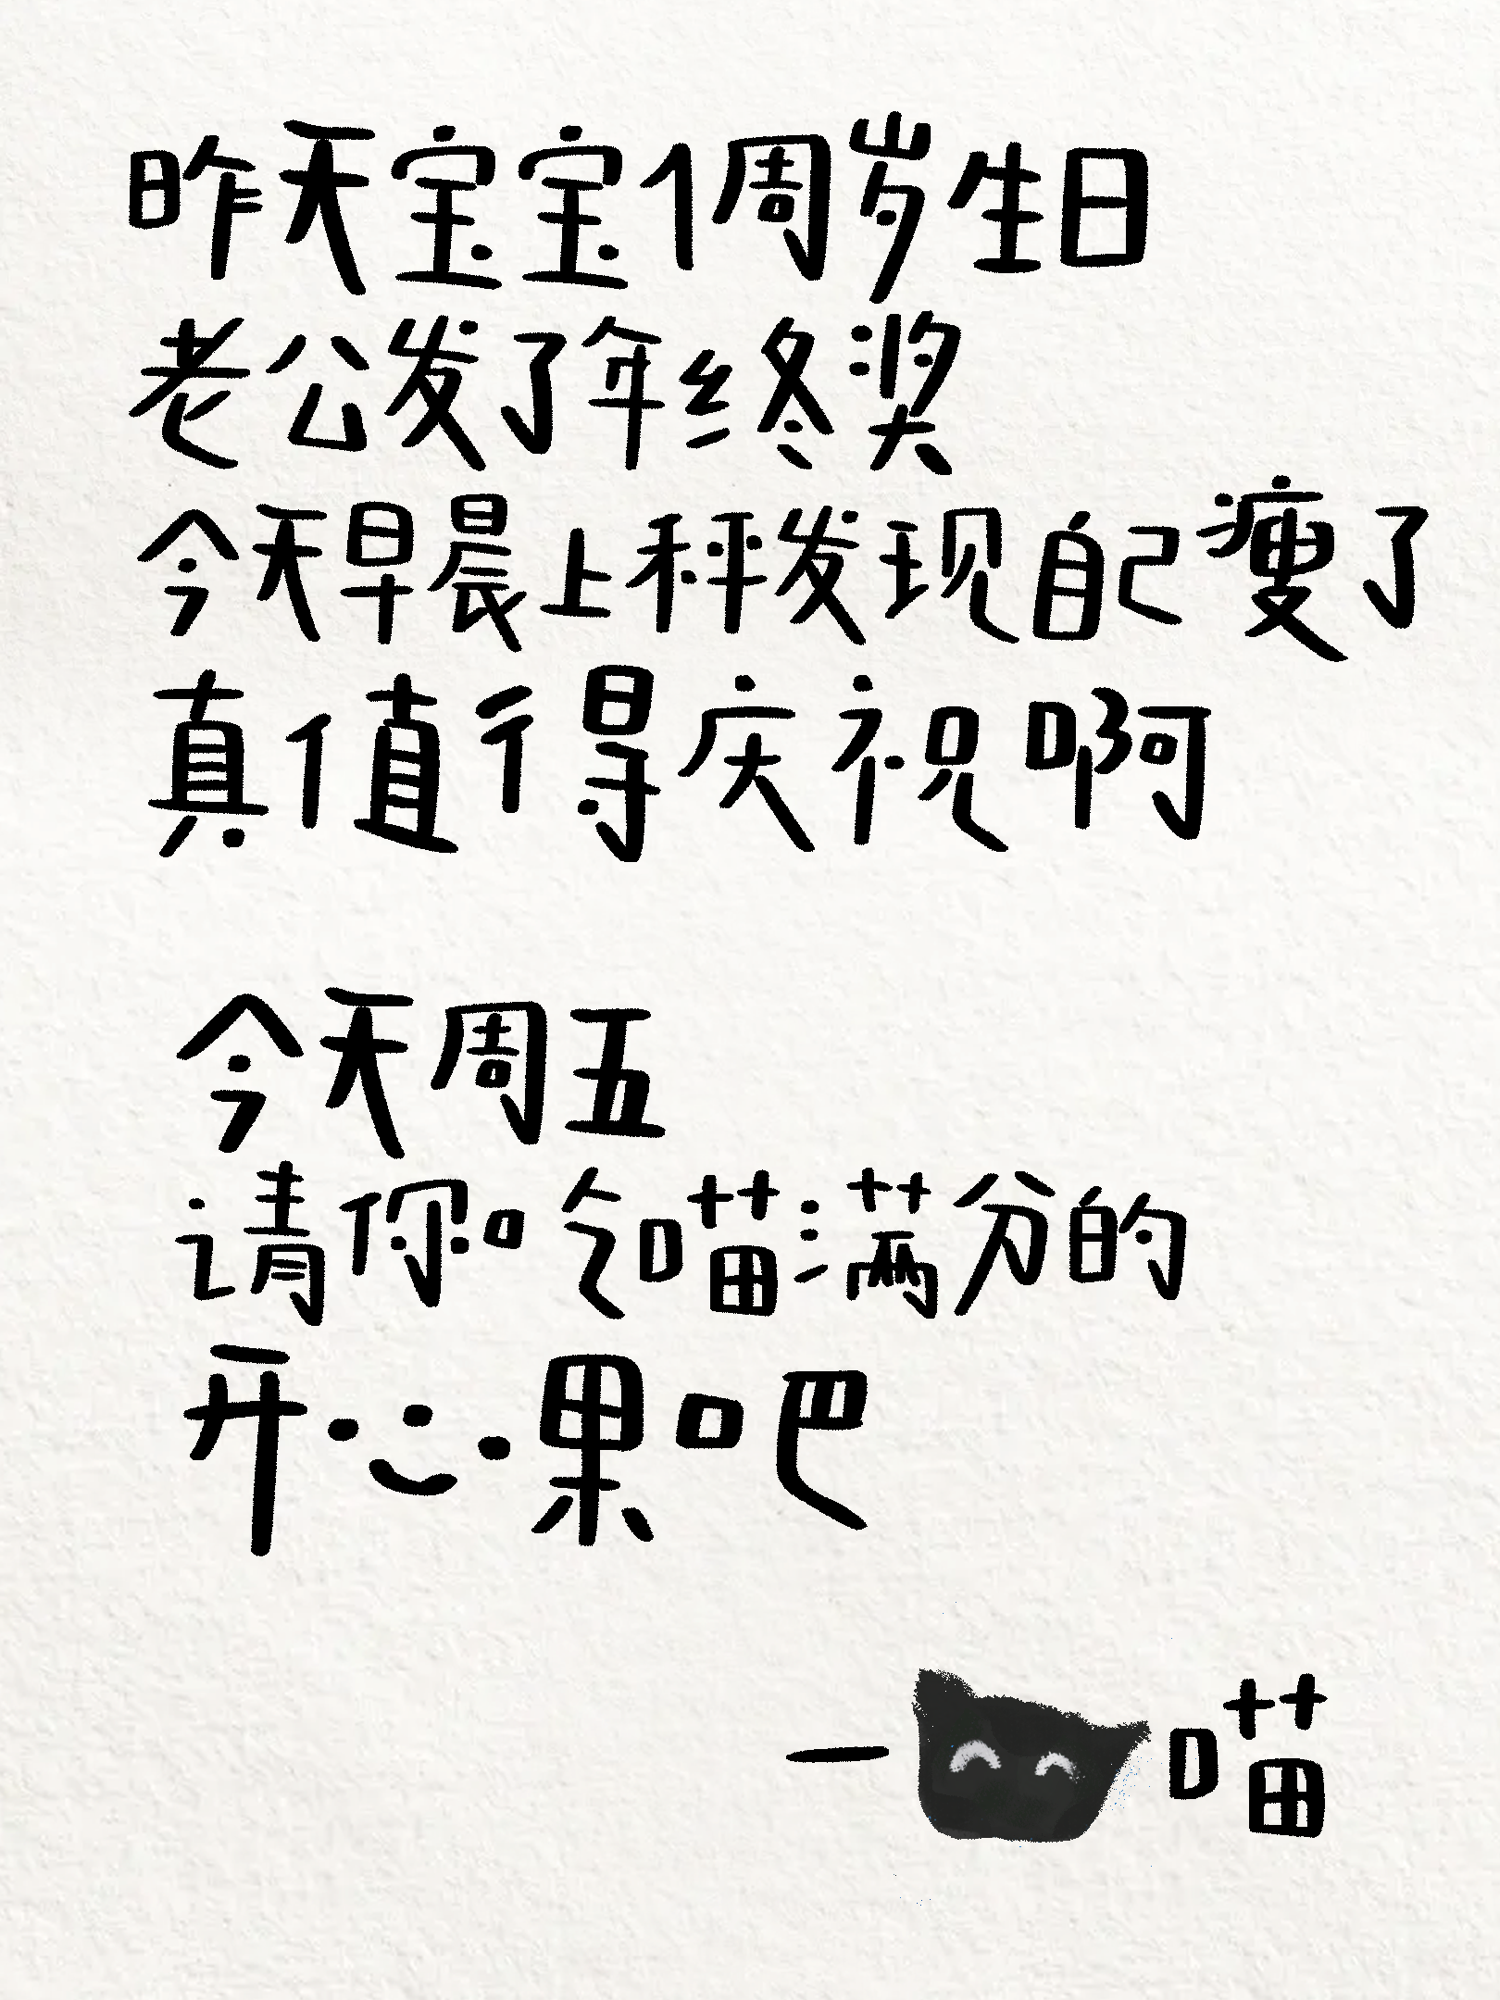 昨天宝宝1周岁生日
老公发了年终奖
今天早晨上秤发现自己瘦了
真值得庆祝啊
今天周五
请你吃喵满分的
开心果吧
—喵